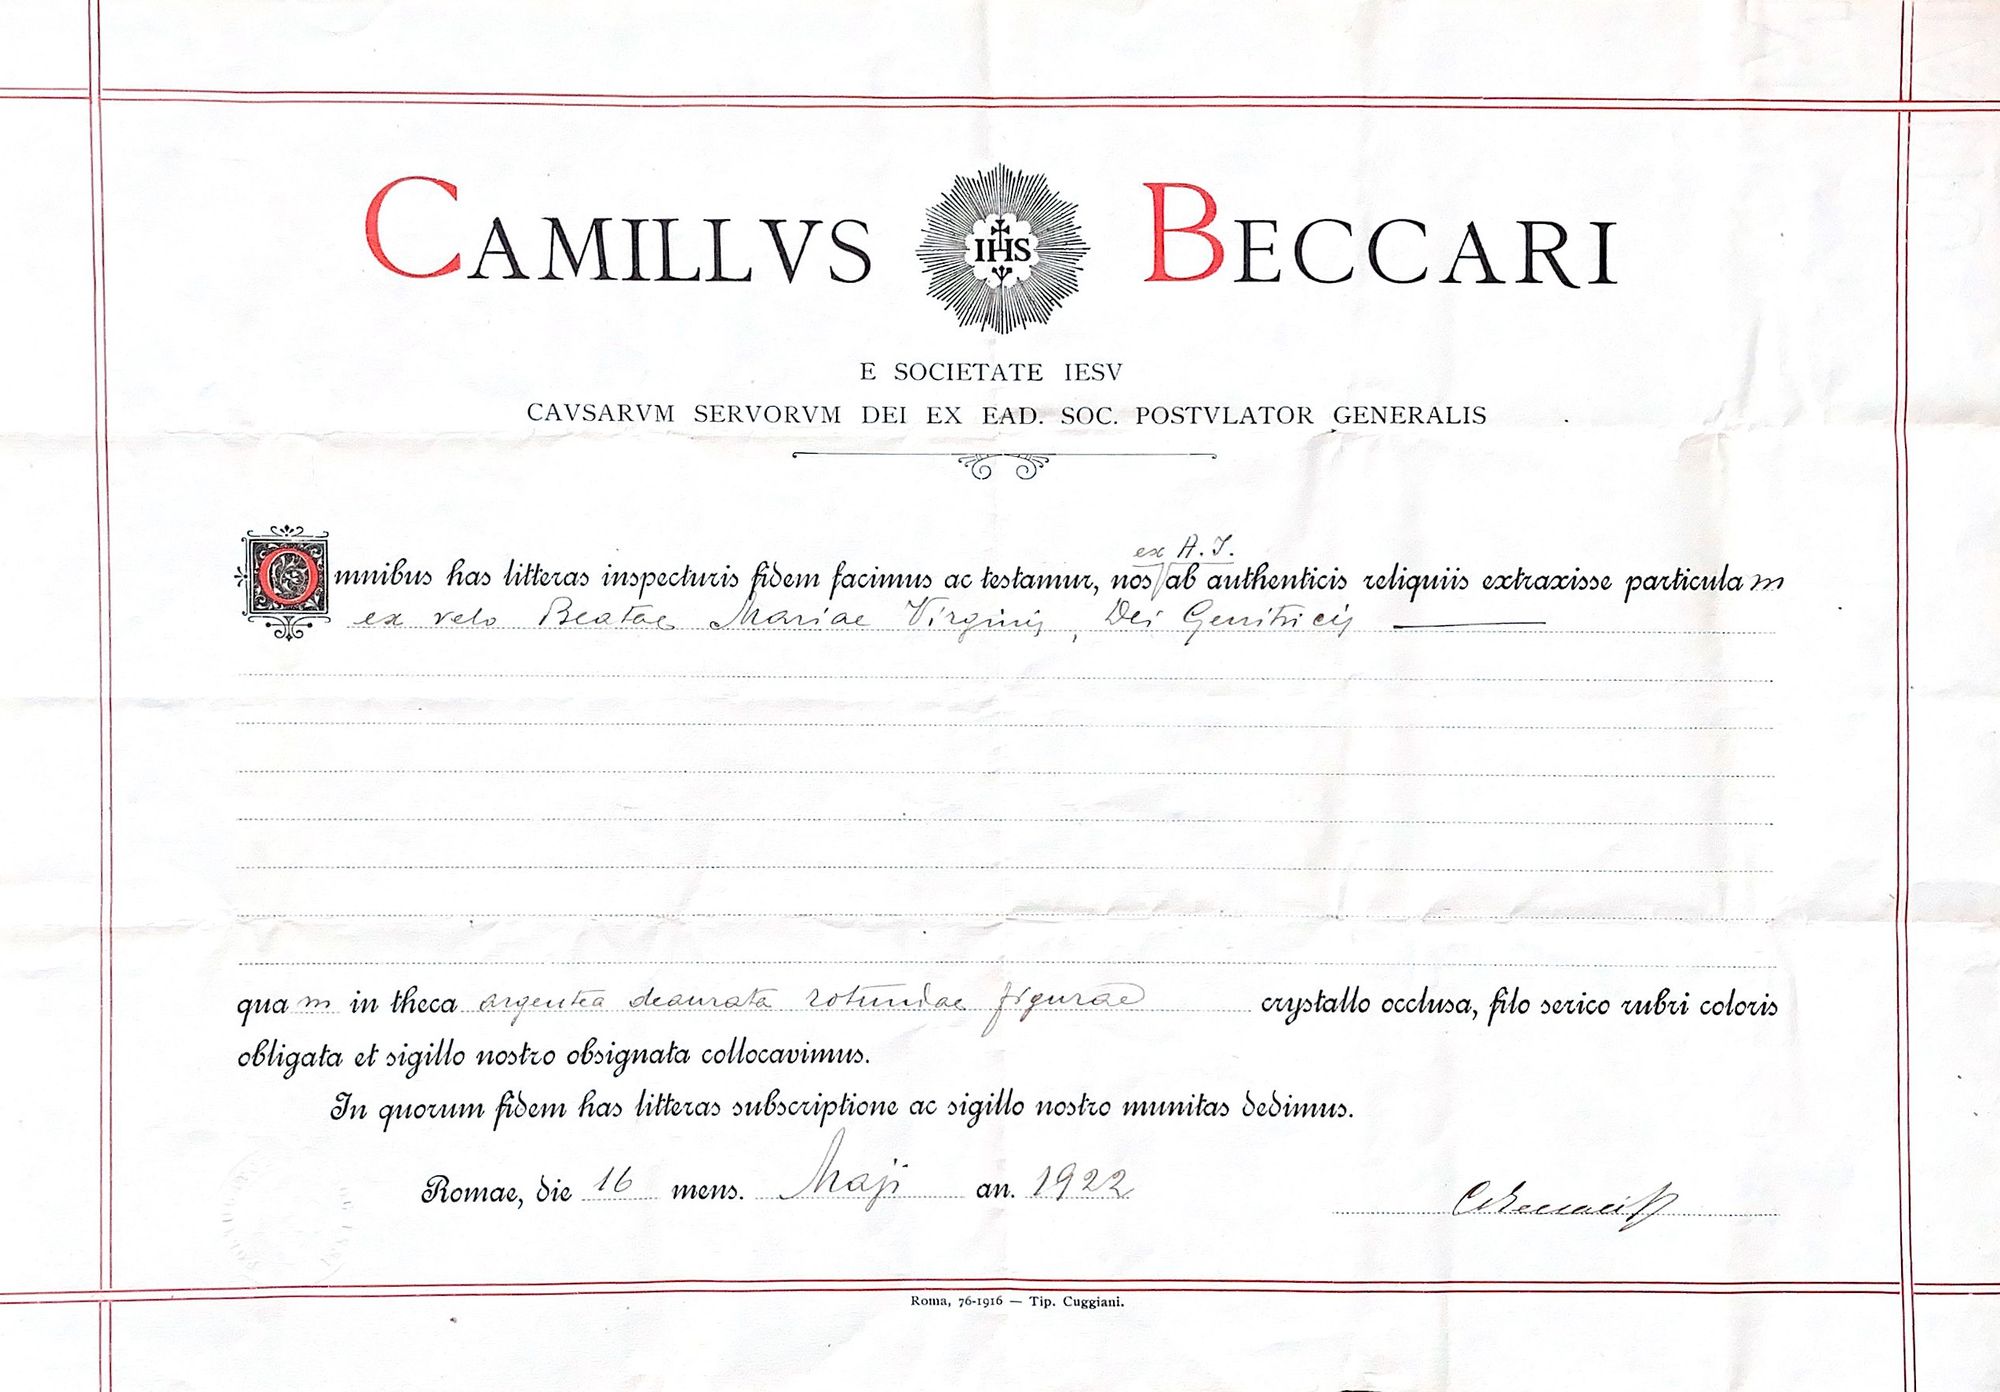 CAMILLVS IHS BECCARI
E SOCIETATE IESV
CAVSARVM SERVORVM DEI EX EAD. SOC. POSTVLATOR GENERALIS
ex A. J.
Omnibus has litteras inspecturis fidem facimus ac testamur, nos ab authenticis reliquiis extraxisse particulam
ex velo Beatae Mariae Virginis, Dei Genitricis
quam in theca argentea deaurata rotundae figurae crystallo occlusa, filo serico rubri coloris
obligata et sigillo nostro obsignata collocavimus.
In quorum fidem has litteras subscriptione ac sigillo nostro munitas dedimus.
Romae, die 16 mens. Maji an. 1922
Roma, 76-1916 — Tip. Cuggiani.